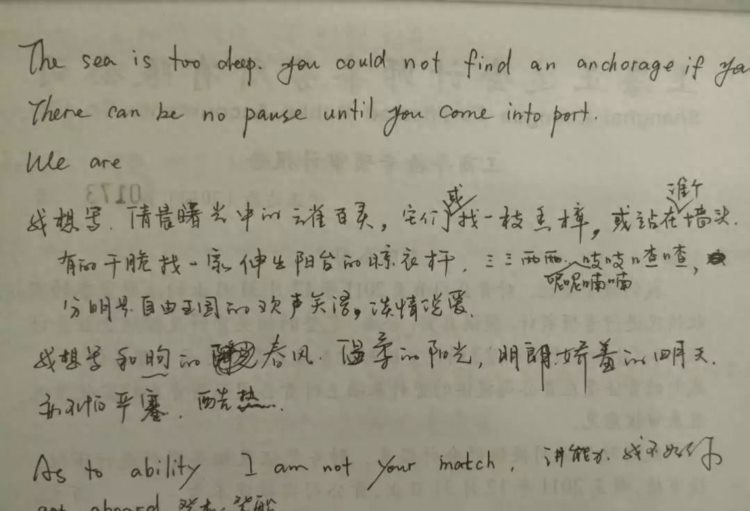 The sea is too deep. you could not find an anchorage if you
There can be no pause until you come into port.
We are
我想写，清晨曙光中的云雀百灵，它们或找一枝香樟，或站在谁个墙头，
有的干脆找一家伸出阳台的晾衣杆，三三两两，吱吱喳喳，
呢呢喃喃
分明是自由王国的欢声笑语，谈情说爱。
我想写和煦的春风，温柔的阳光，明朗娇羞的四月天。
亦不怕严寒，酷热。
As to ability I am not your match, 讲能力，我不如你
get aboard 登船